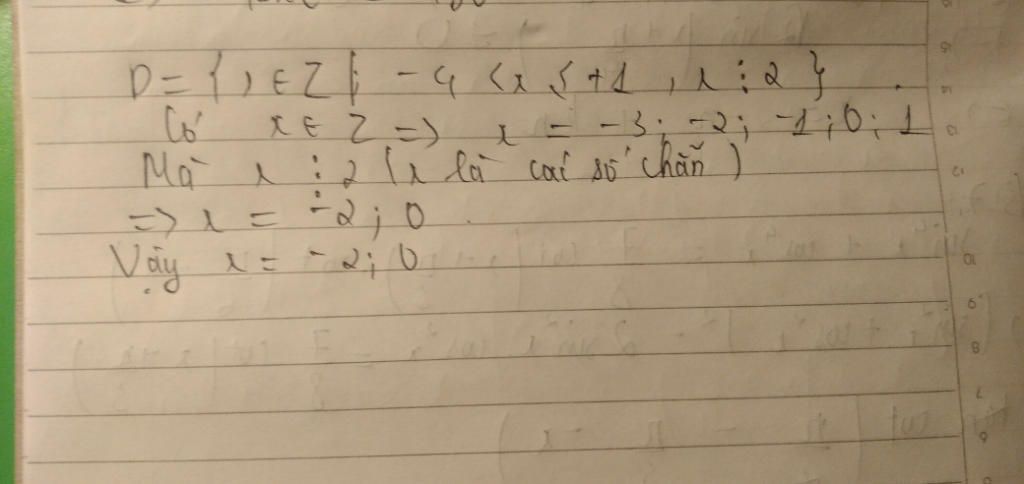 D = { x ∈ Z | -4 < x ≤ +1 , x ⋮ 2 }
Có x ∈ Z => x = -3; -2; -1; 0; 1
Mà x ⋮ 2 (x là các số chẵn)
=> x = -2; 0
Vậy x = -2; 0